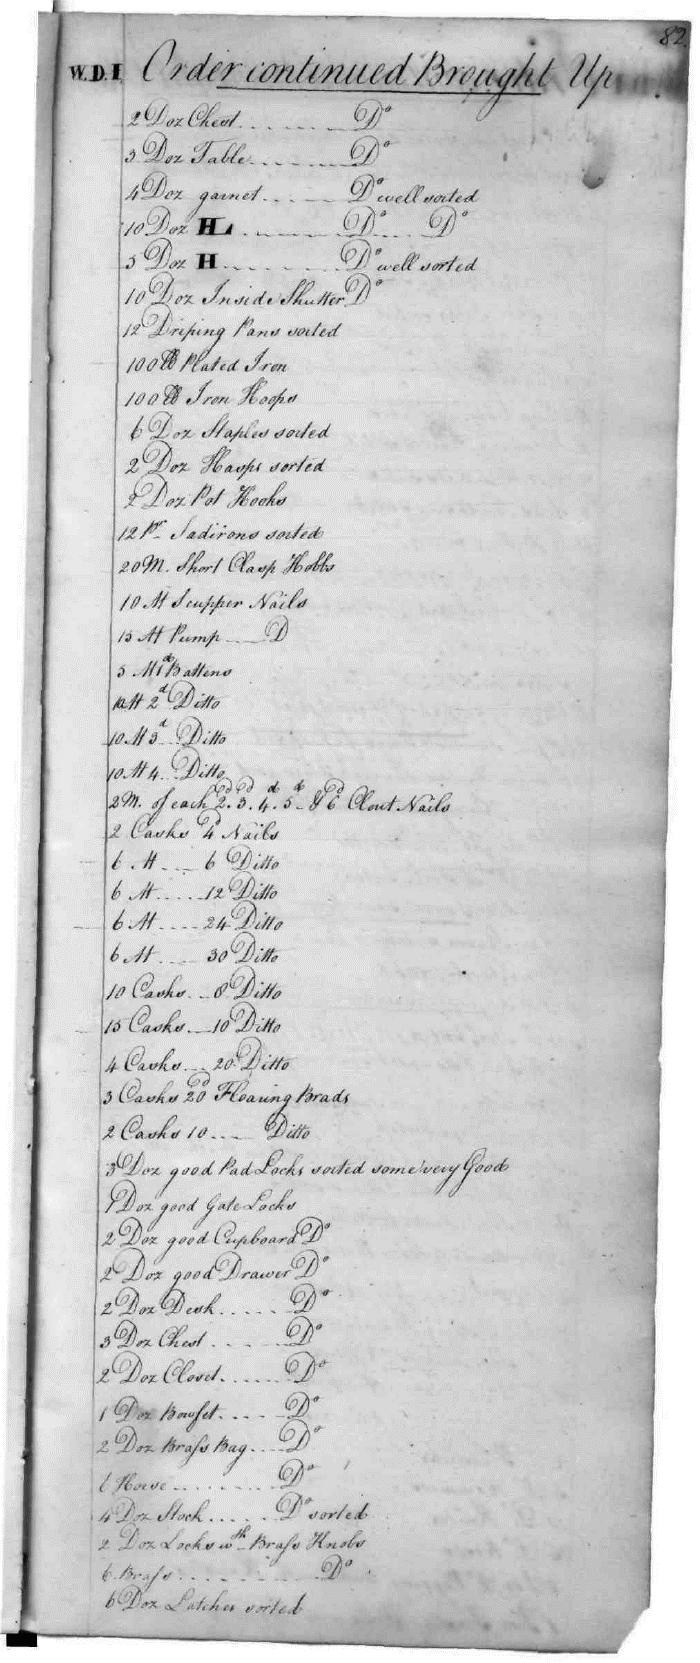 82
W.D.I. Order continued Brought Up
2 Doz Chest........Do
3 Doz Table........Do
4 Doz garnet.......Do well sorted
10 Doz HL..........Do....Do
5 Doz H..........Do well sorted
10 Doz Inside Shutter Do
12 Driping Pans sorted
100 lb Plated Iron
100 lb Iron Hoops
6 Doz Staples sorted
2 Doz Hasps sorted
2 Doz Pot Hooks
12 Pr Sadirons sorted
20 M. Short Clasp Hobbs
10 M Scupper Nails
15 M Pump.....D
5 M 1d Battens
10 M 2d Ditto
10 M 3d Ditto
10 M 4.. Ditto
2 M. of each 2d. 3d. 4d. 5d & 6d Clout Nails
2 Casks 4d Nails
6 M.... 6 Ditto
6 M.....12 Ditto
6 M....24 Ditto
6 M.....30 Ditto
10 Casks...8 Ditto
15 Casks...10 Ditto
4 Casks....20 Ditto
3 Casks 20d Floaring Brads
2 Casks 10..... Ditto
3 Doz good Pad Locks sorted some very Good
1 Doz good Gate Locks
2 Doz good Cupboard Do
2 Doz good Drawer Do
2 Doz Desk......Do
3 Doz Chest......Do
2 Doz Closet......Do
1 Doz Bowfet......Do
2 Doz Brass Bag....Do
House.........Do
4 Doz Stock......Do sorted
2 Doz Locks wth Brass Knobs
6 Brass............Do
6 Doz Latches sorted